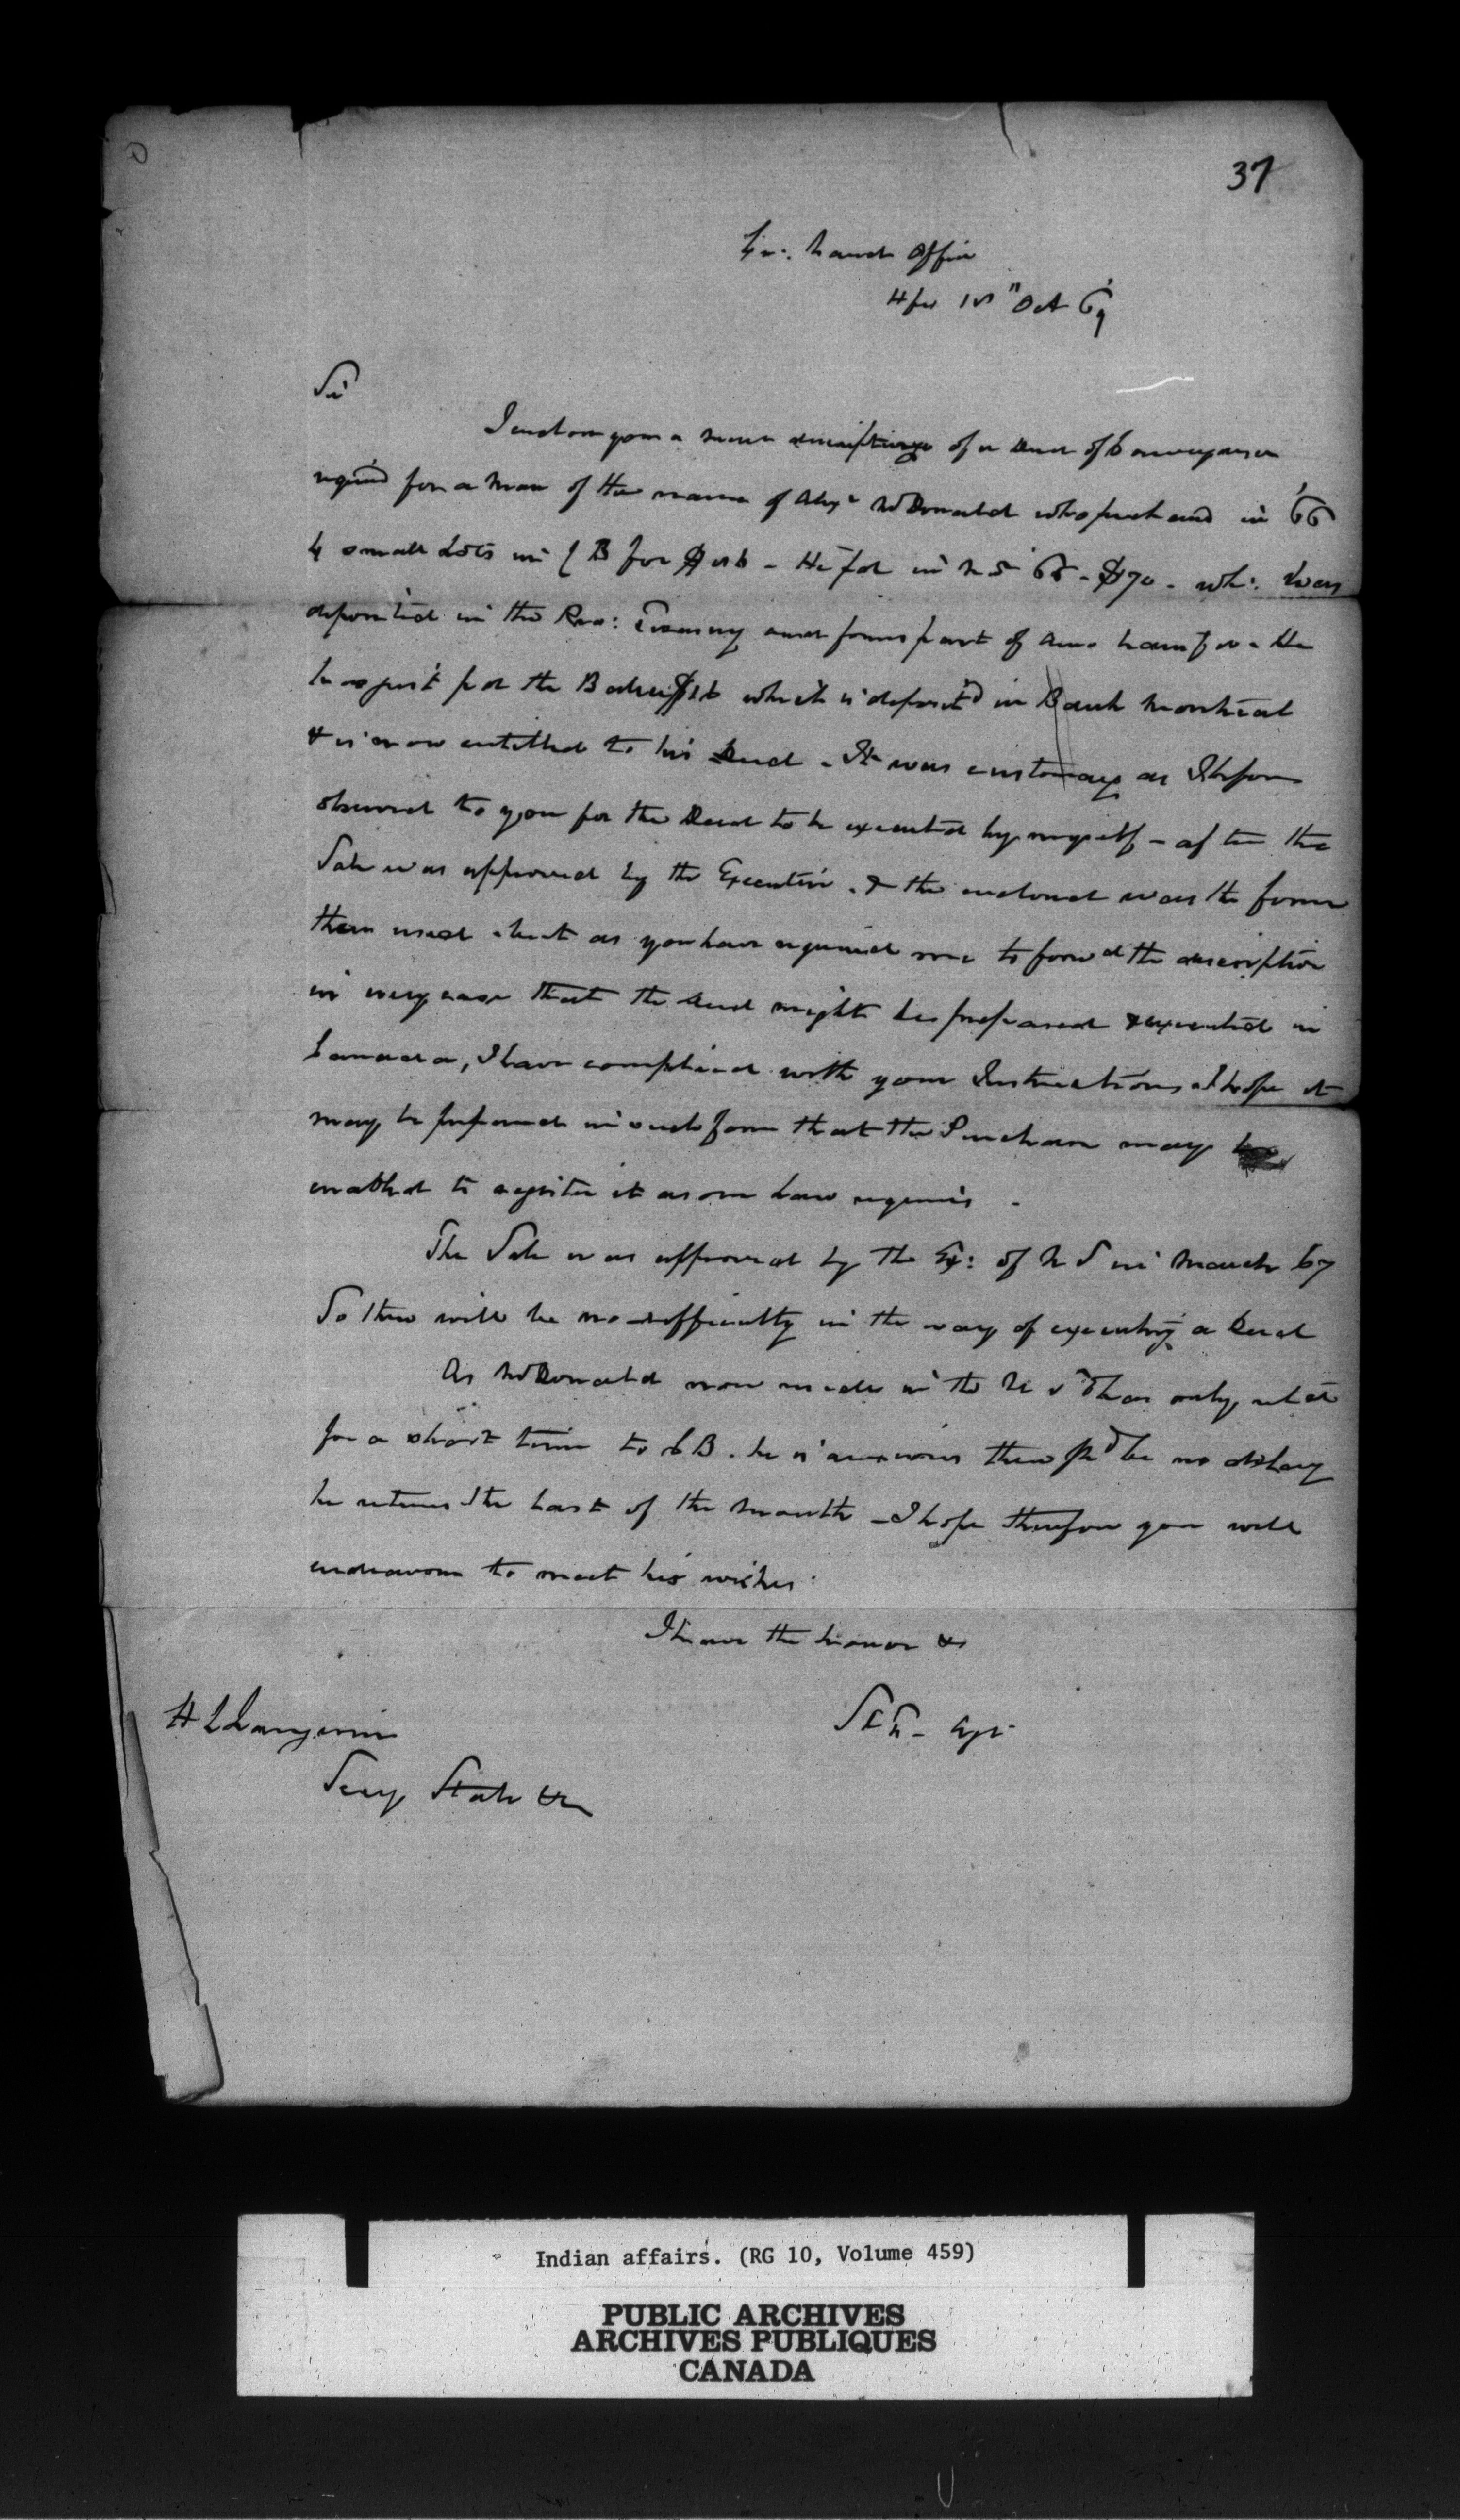 37
Office
Oct 69
Sir
I enclose you a description of a Deed of Conveyance
required for a Man of the name of Alexr McDonald who purchased in '66
4 small Lots in C B for He pd in 66 - $70 - wh: was
deposited in the Treasury and forms part of He
has just pd the which is deposit'd in Bank Montreal
& is now entitled to his Deed - It was customary as I before
observed to you for the Deed to be executed by myself - after the
Sale was approved by the Executive - & the enclosed was the form
then used but as you have required me to forwd the description
in every case that the Deed might be prepared & executed in
Canada, I have complied with your Instructions I hope it
may be prepared in such form that the Purchaser may be
enabled to register it as our Law requires -
The Sale was approved by the Ex: of N S in March 67
So there will be no difficulty in the way of executing a Deed
As McDonald now resides in the U S & has only
for a short time to C B. he is anxious there shd be no delay
he returns the last of the Month - I hope therefore you will
endeavour to meet his wishes
I have the honor &
H L Langevin
Secy State &c
Indian affairs. (RG 10, Volume 459)
PUBLIC ARCHIVES
ARCHIVES PUBLIQUES
CANADA